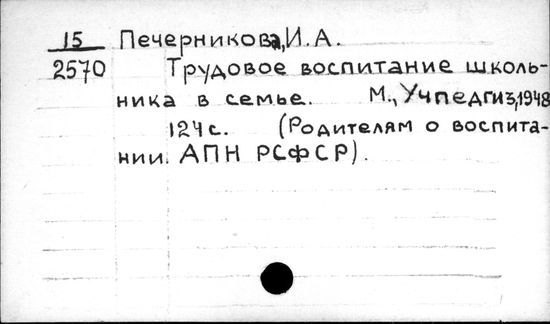 15 Печерникова, И. А.
2570 Трудовое воспитание школь-
ника в семье. М., Учпедгиз, 1948
124 с. (Родителям о воспита-
нии. АПН РСФСР).